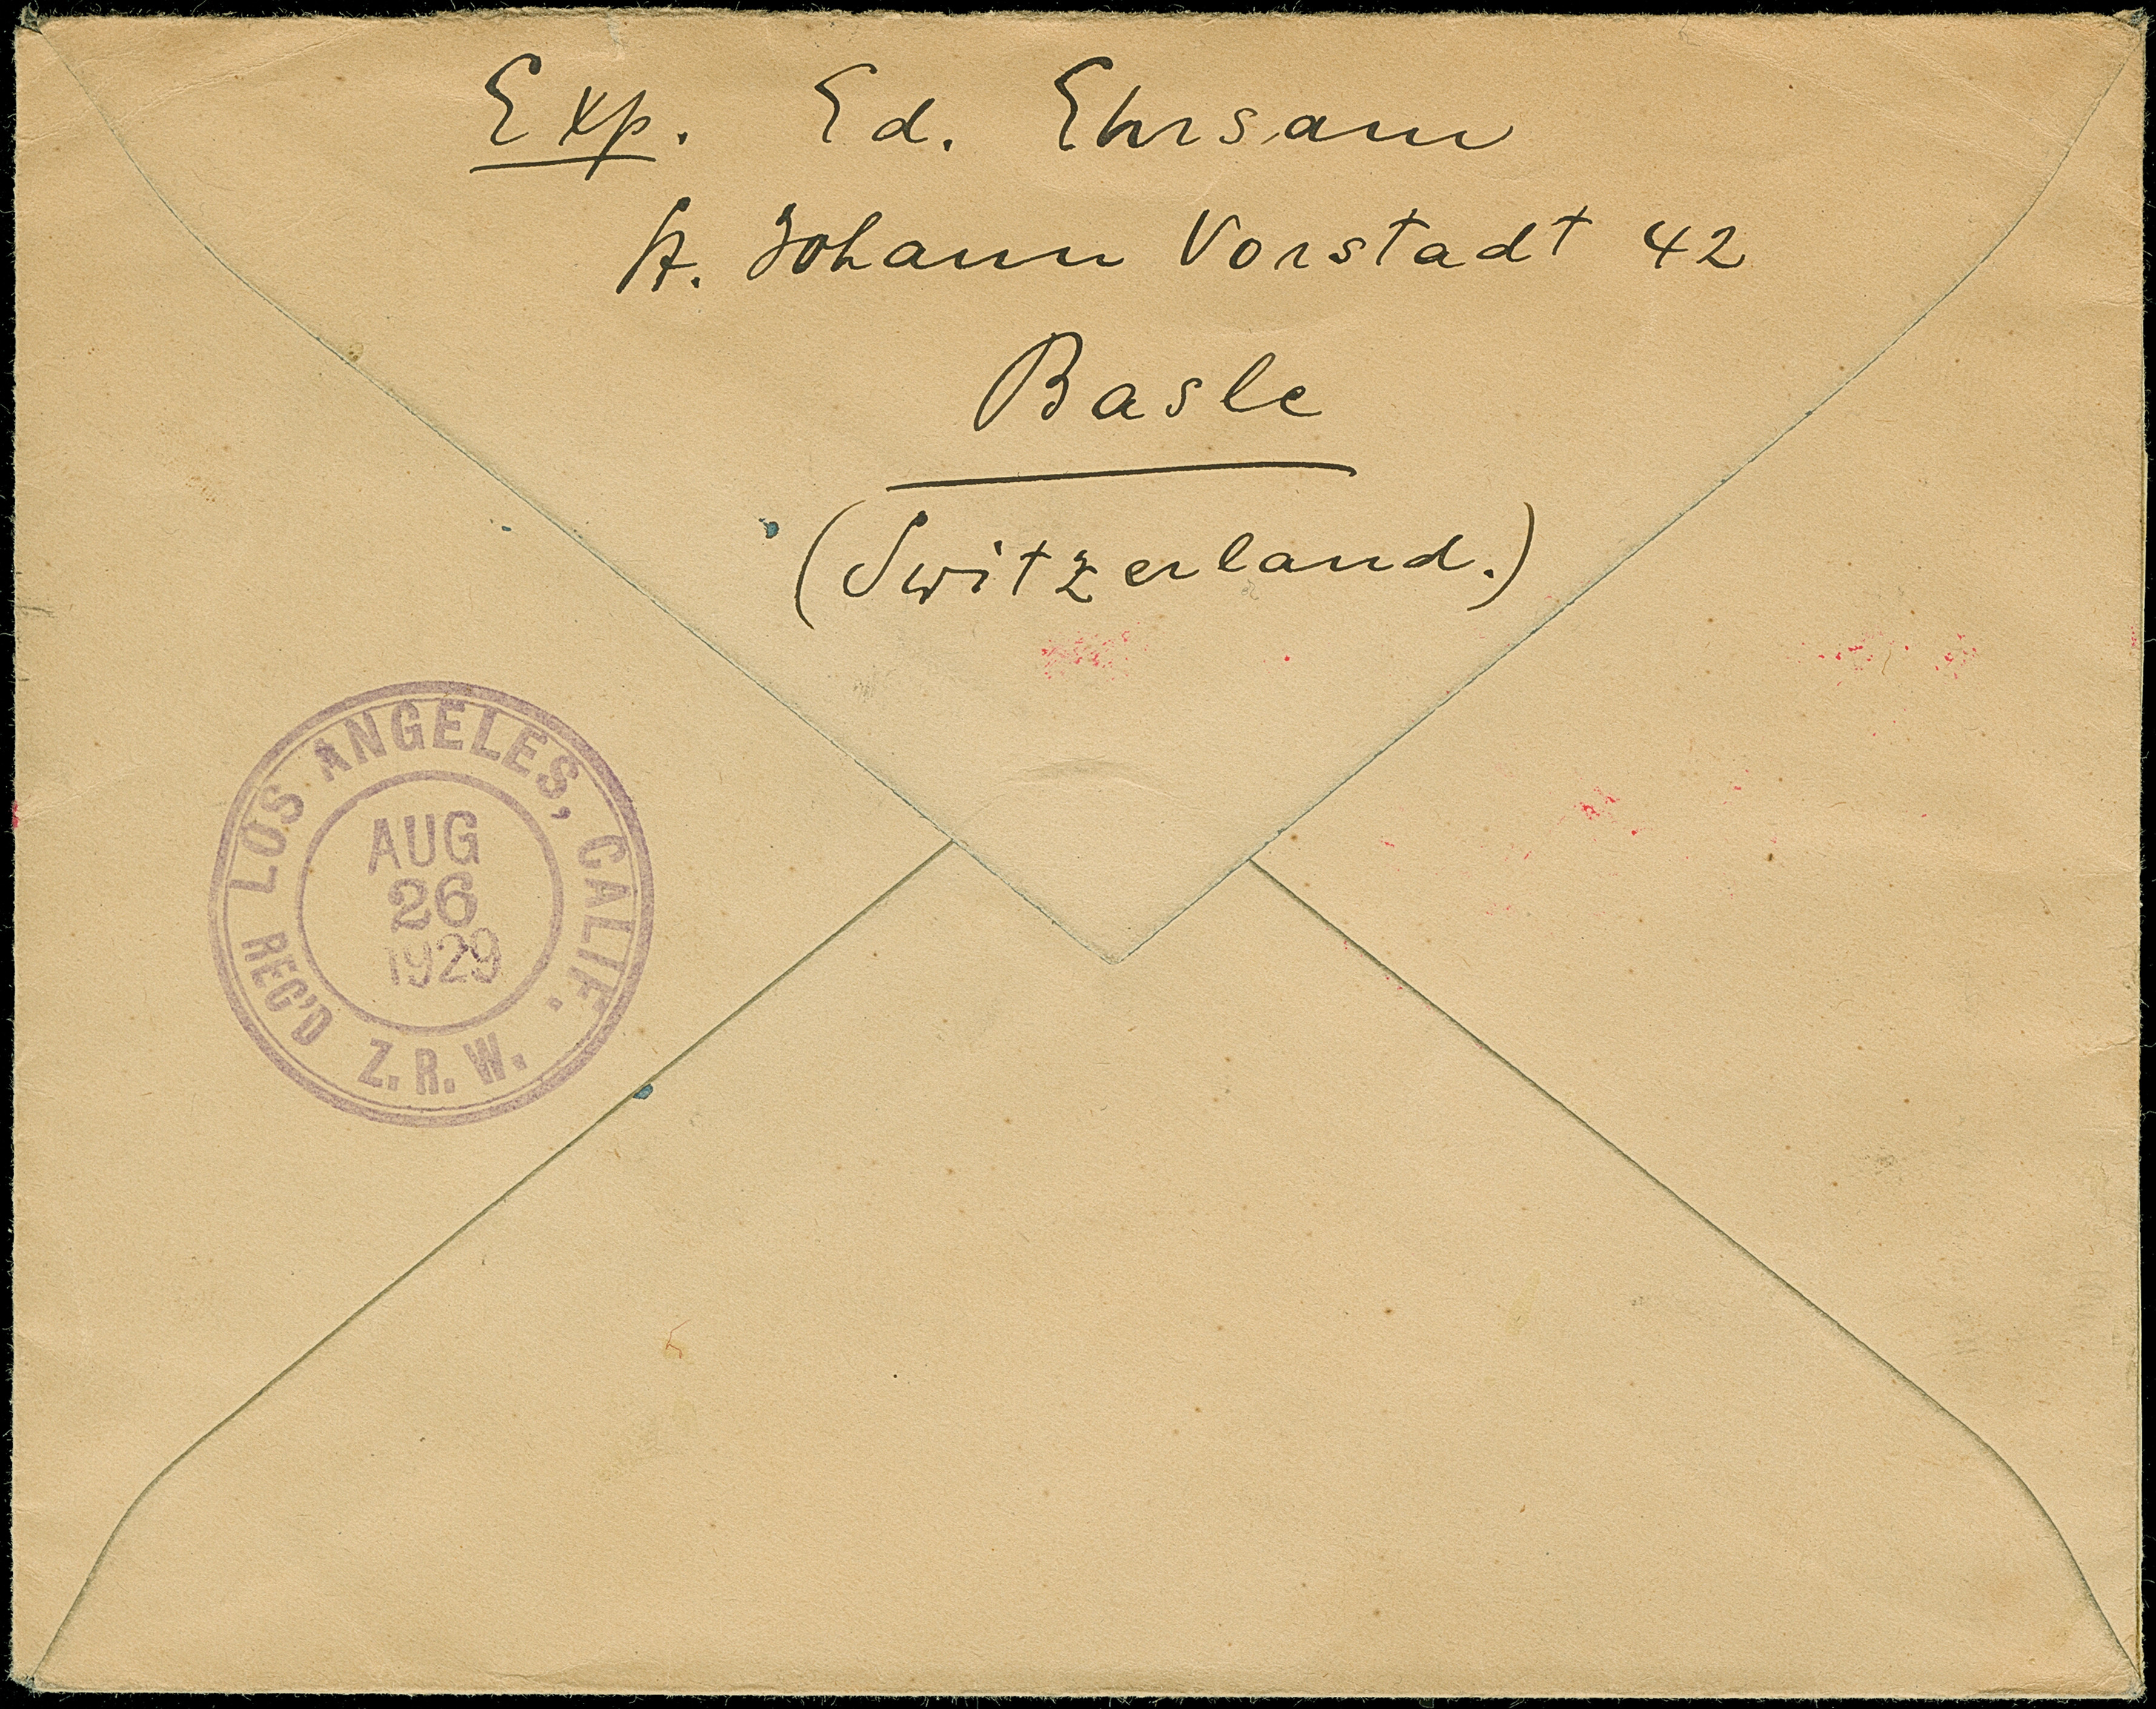 Exp. Ed. Ehrsam
St. Johann Vorstadt 42
Basle
(Switzerland.)
LOS ANGELES, CALIF.
AUG
26
1929
REC'D Z. R. W.